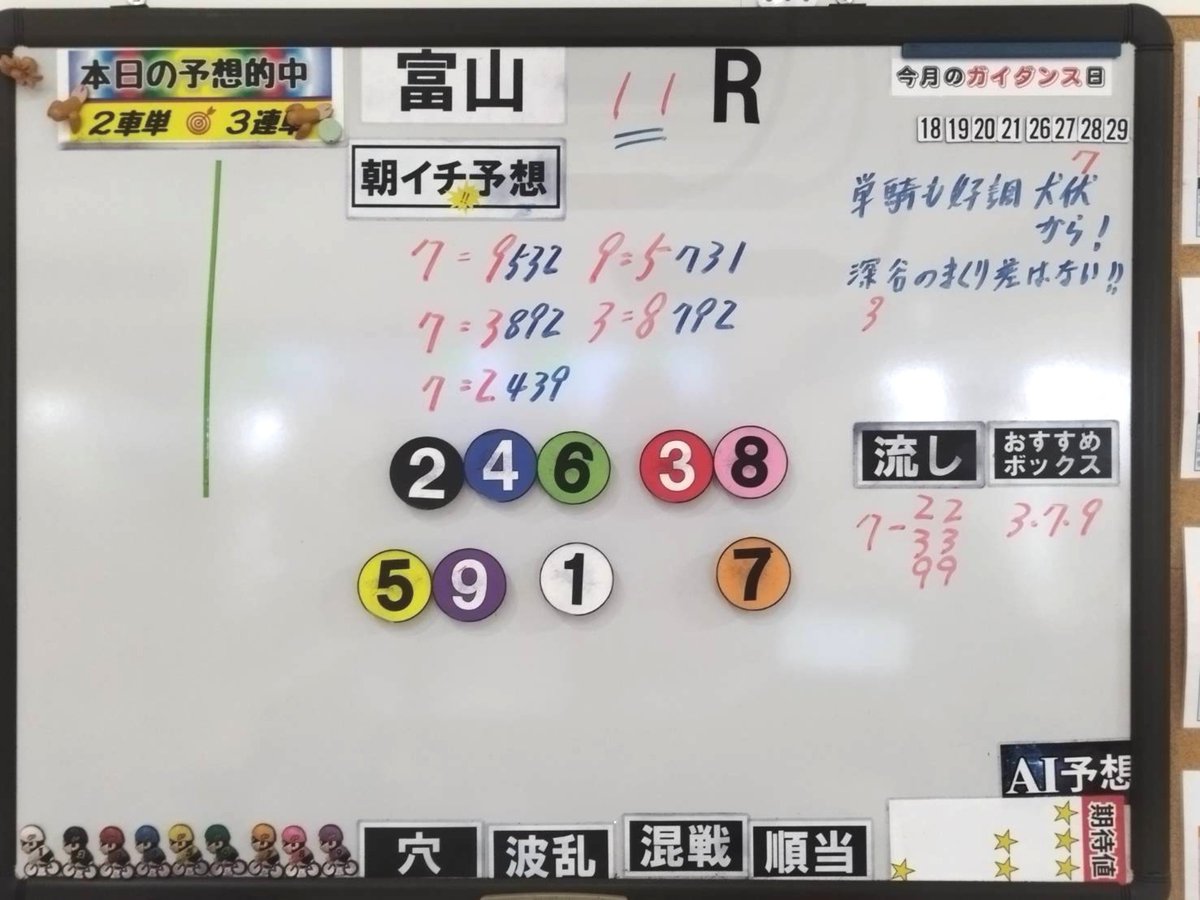 本日の予想的中
2車単 3連単
富山 11 R
今月のガイダンス日
18 19 20 21 26 27 28 29
朝イチ予想!!
7
単騎も好調 犬伏
から!
深谷のまくり差はない!!
3
7=9532 9=5731
7=3892 3=8792
7=2.439
2 4 6 3 8
5 9 1 7
流し
おすすめ
ボックス
7- 22
33
99
3.7.9
AI予想
期待値
穴 波乱 混戦 順当